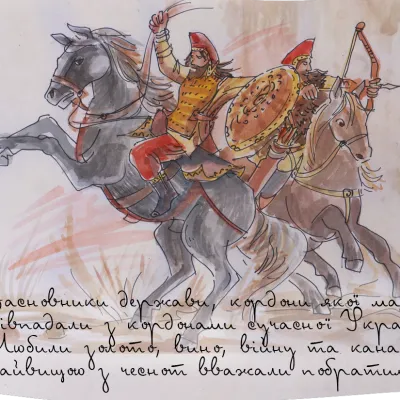 засновники держави, кордони якої ма
івпадали з кордонами сучасної Укра
Любили золото, вино, війну та кана
айвищою з чеснот вважали побратим